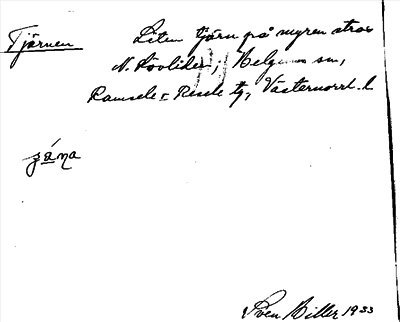 Tjärnen Liten tjärn på myren strax
N. Lövliden, Helgums sn,
Ramsele o. Resele tg, Västernorrl. l
Sven Biller 1933